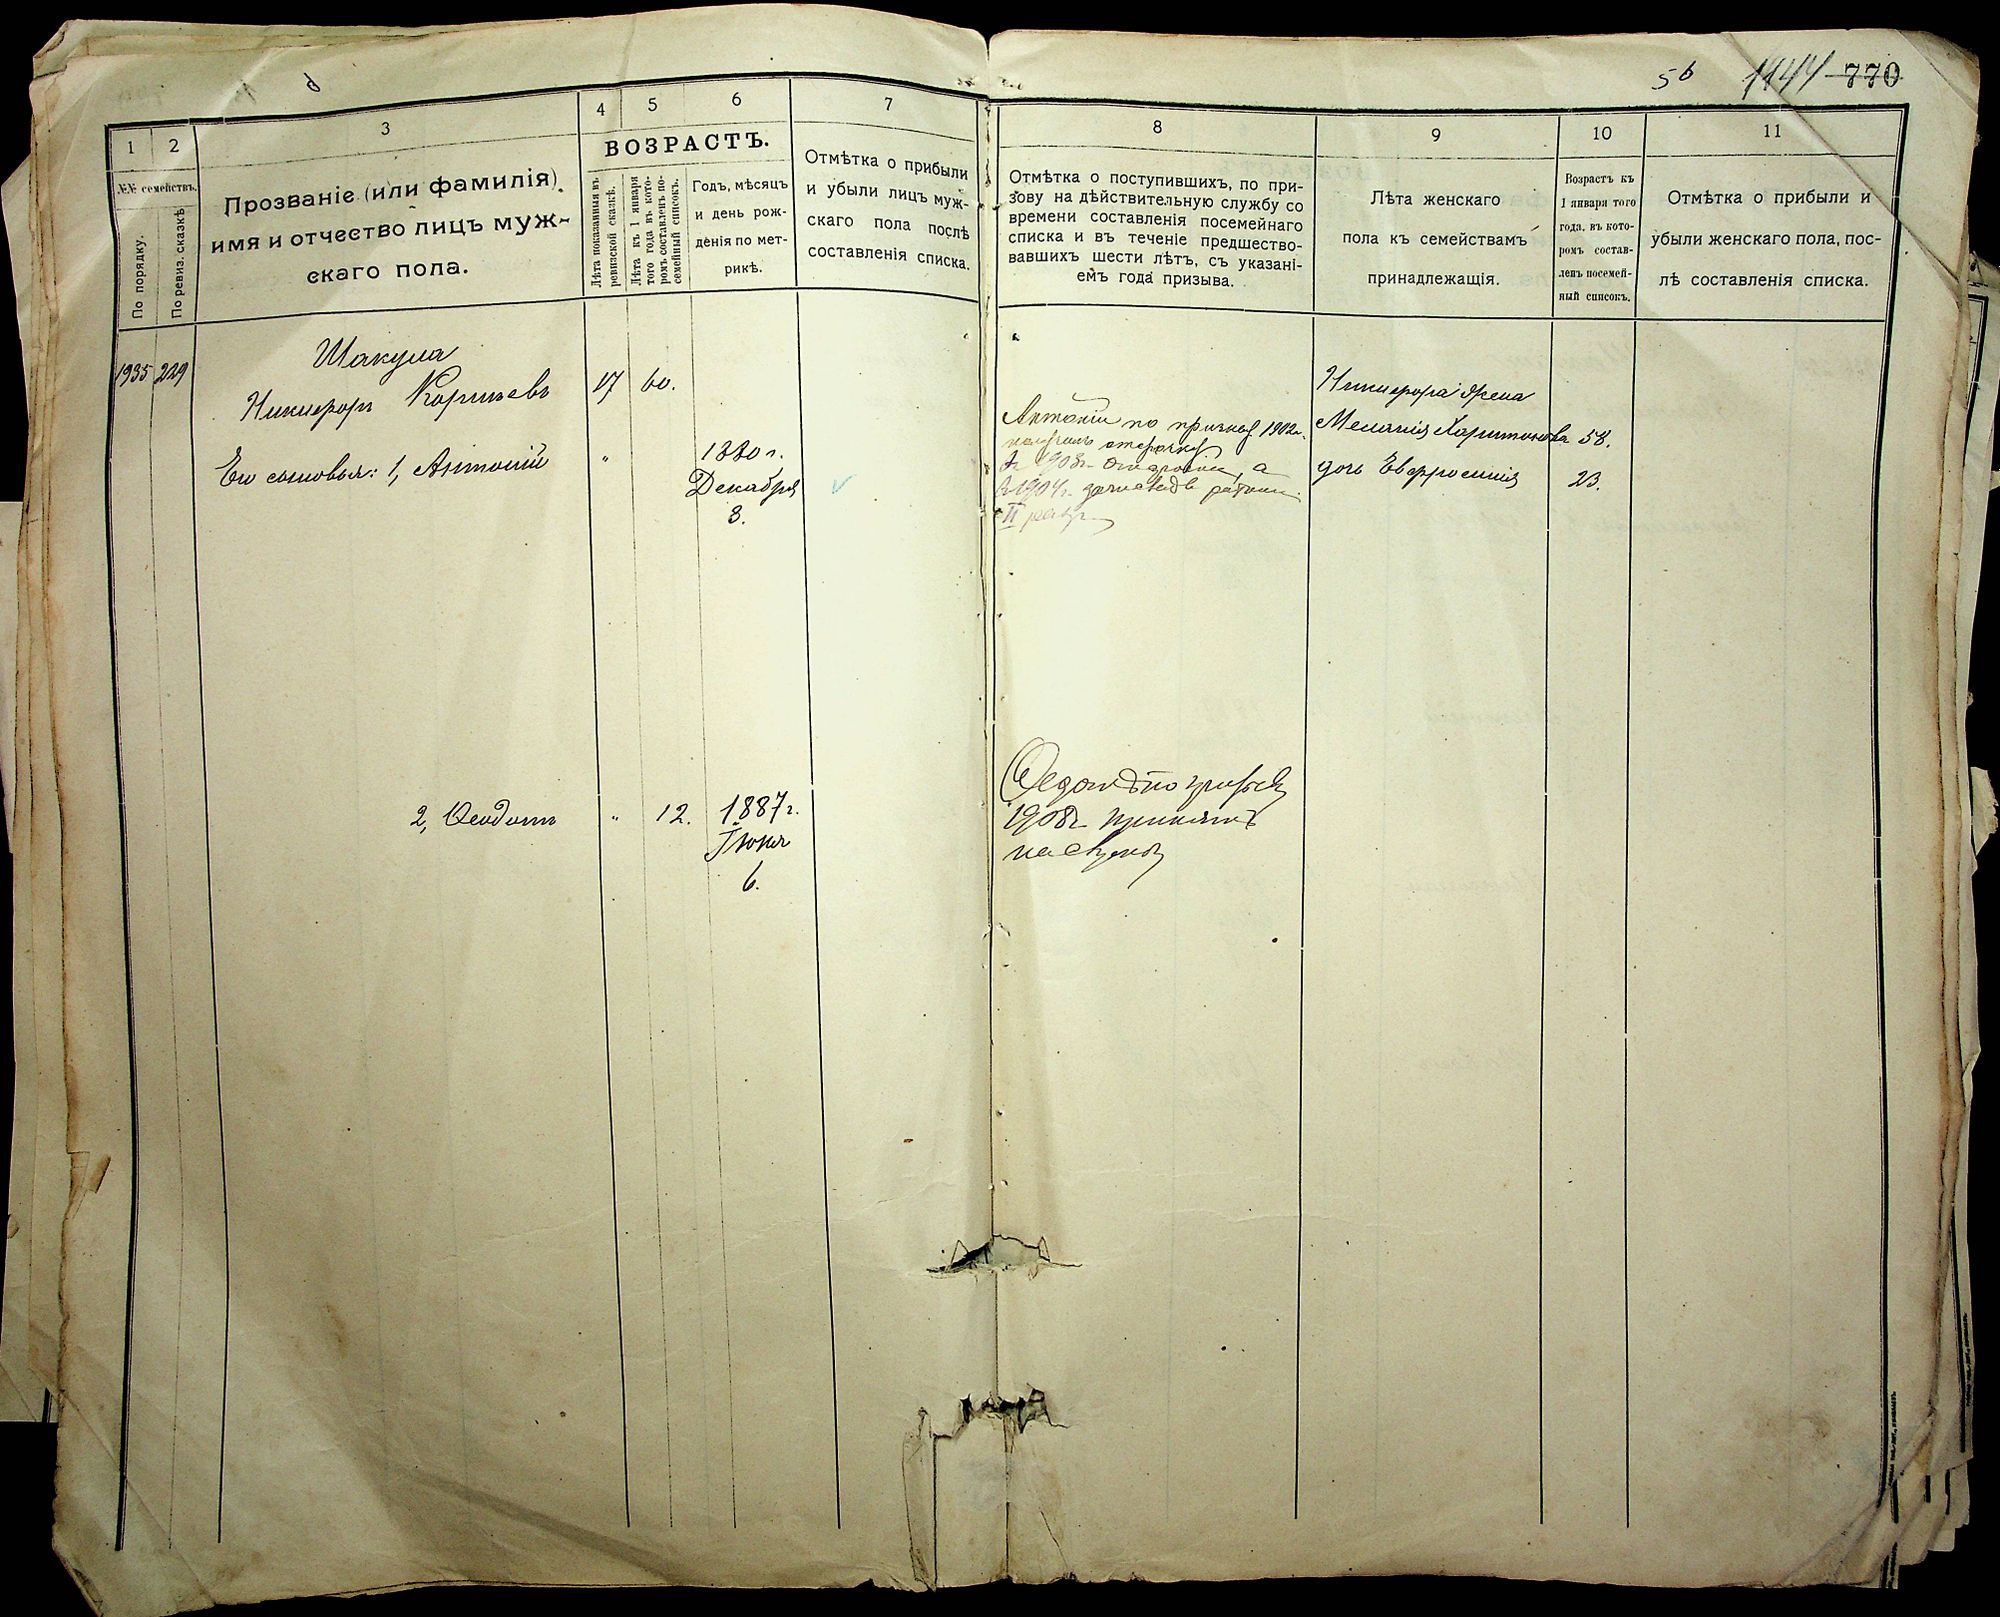 5ь 1144 770
1
2
3
4
5
6
7
№№ семействъ.
По порядку.
По ревиз. сказкѣ
Прозваніе (или фамилія),
имя и отчество лицъ муж-
скаго пола.
ВОЗРАСТЪ.
Лѣта показанныя въ
ревизской сказкѣ.
Лѣта къ 1 января
того года въ кото-
ромъ составленъ по-
семейный списокъ.
Годъ, мѣсяцъ
и день рож-
денія по мет-
рикѣ.
Отмѣтка о прибыли
и убыли лицъ муж-
скаго пола послѣ
составленія списка.
8
9
10
11
Отмѣтка о поступившихъ, по при-
зову на дѣйствительную службу со
времени составленія посемейнаго
списка и въ теченіе предшество-
вавшихъ шести лѣтъ, съ указані-
емъ года призыва.
Лѣта женскаго
пола къ семействамъ
принадлежащія.
Возрастъ къ
1 января того
года, въ кото-
ромъ состав-
ленъ посемей-
ный списокъ.
Отмѣтка о прибыли и
убыли женскаго пола, пос-
лѣ составленія списка.
1935 229
Шакула
Никифоръ Корнѣевъ 17 60.
Его сыновья: 1, Антоній "
1880 г.
Декабря
3.
2, Ѳеодотъ " 12. 1887 г.
Іюня
6.
Антоній по призыву 1902 г.
получилъ отсрочку
в 1903 г. а
в 1904 г. зачисленъ в ратники
II разр.
Ѳедотъ по призыву
1908 г. принятъ
на службу
Никифора жена
Меланія Харитонова 58.
дочь Евфросинія 23.